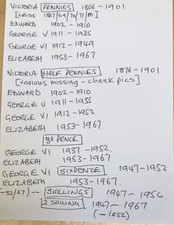 VICTORIA PENNIES 1866-1901
EDWARD 1902-1910
GEORGE V 1911-1935
GEORGE VI 1912-1949
ELIZABETH 1953-1967
VICTORIA HALF PENNIES 1876-1901
(Various missing - check pics)
EDWARD 1902-1910
GEORGE V 1911-1935
GEORGE VI 1912-1952
ELIZABETH 1953-1967
3D PENCE
GEORGE VI 1937-1952
ELIZABETH 1953-1967
GEORGE VI SIXPENCE 1947-1952
ELIZABETH 1953-1967
SHILLINGS 1947-1956
2 SHILLING 1947-1967
(-1952)